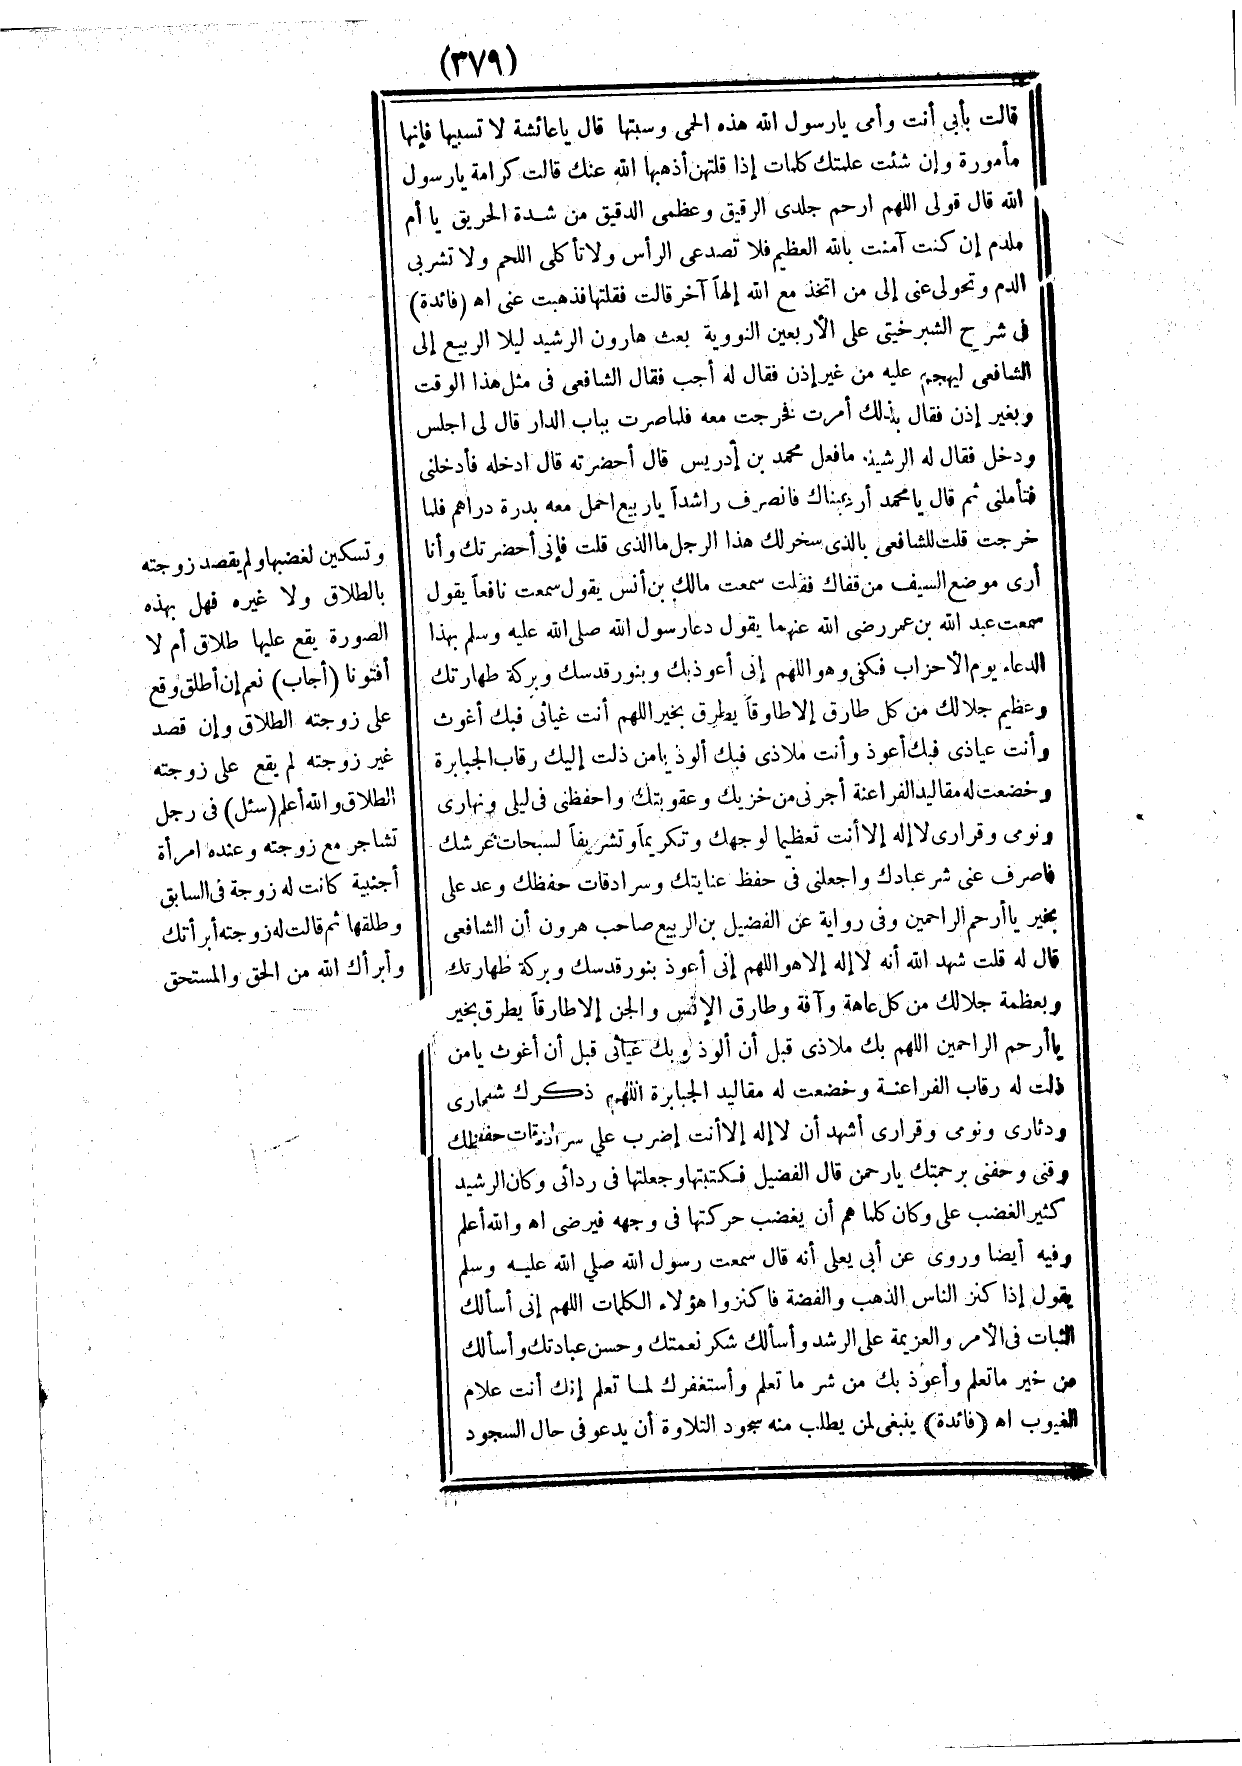 (٣٧٩)
قالت بأبى أنت وأمى يارسول الله هذه الحمى وسبتها قال ياعائشة لا تسبيها فإنها
مأمورة وإن شئت علمتك كلمات إذا قلتهن أذهبها الله عنك قالت كرامة يارسول
الله قال قولى اللهم ارحم جلدى الرقيق وعظمى الدقيق من شدة الحريق يا أم
ملدم إن كنت آمنت بالله العظيم فلا تصدعى الرأس ولا تأكلى اللحم ولا تشربى
الدم وتحولى عنى إلى من اتخذ مع الله إلهاً آخر قالت فقلتها فذهبت عنى اه (فائدة)
فى شرح الشبرخيتى على الأربعين النووية بعث هارون الرشيد ليلا الربيع إلى
الشافعى ليهجم عليه من غير إذن فقال له أجب فقال الشافعى فى مثل هذا الوقت
وبغير إذن فقال بذلك أمرت فخرجت معه فلما صرت بباب الدار قال لى اجلس
ودخل فقال له الرشيد مافعل محمد بن إدريس قال أحضرته قال ادخله فأدخلنى
فتأملنى ثم قال يامحمد أرعبناك فانصرف راشداً ياربيع احمل معه بدرة دراهم فلما
خرجت قلت للشافعى بالذى سخر لك هذا الرجل ما الذى قلت فإنى أحضرتك وأنا
أرى موضع السيف من قفاك فقلت سمعت مالك بن أنس يقول سمعت نافعاً يقول
سمعت عبد الله بن عمر رضى الله عنهما يقول دعا رسول الله صلى الله عليه وسلم بهذا
الدعاء يوم الأحزاب فكفى وهو اللهم إنى أعوذ بك وبنور قدسك وبركة طهارتك
وعظيم جلالك من كل طارق إلا طارقاً يطرق بخير اللهم أنت غياثى فبك أغوث
وأنت عياذى فبك أعوذ وأنت ملاذى فبك ألوذ يامن ذلت إليك رقاب الجبابرة
وخضعت له مقاليد الفراعنة أجرنى من خزيك وعقوبتك واحفظنى فى ليلى ونهارى
ونومى وقرارى لا إله إلا أنت تعظيما لوجهك وتكريماً وتشريفاً لسبحات عرشك
فاصرف عنى شر عبادك واجعلنى فى حفظ عنايتك وسرادقات حفظك وعد على
بخير يا أرحم الراحمين وفى رواية عن الفضيل بن الربيع صاحب هرون أن الشافعى
قال له قلت شهد الله أنه لا إله إلا هو اللهم إنى أعوذ بنور قدسك وبركة طهارتك
وبعظمة جلالك من كل عاهة وآفة وطارق الإنس والجن إلا طارقاً يطرق بخير
يا أرحم الراحمين اللهم بك ملاذى قبل أن ألوذ وبك غياثى قبل أن أغوث يامن
ذلت له رقاب الفراعنة وخضعت له مقاليد الجبابرة اللهم ذكرك شعارى
ودثارى ونومى وقرارى أشهد أن لا إله إلا أنت إضرب علي سرادقات حفظك
وقنى وحفنى برحمتك يارحمن قال الفضيل فكتبتها وجعلتها فى ردائى وكان الرشيد
كثير الغضب على وكان كلما هم أن يغضب حركتها فى وجهه فيرضى اه والله أعلم
وفيه أيضا وروى عن أبى يعلى أنه قال سمعت رسول الله صلي الله عليه وسلم
يقول إذا كنز الناس الذهب والفضة فاكنزوا هؤلاء الكلمات اللهم إنى أسألك
الثبات فى الأمر والعزيمة على الرشد وأسألك شكر نعمتك وحسن عبادتك وأسألك
من خير ماتعلم وأعوذ بك من شر ما تعلم وأستغفرك لما تعلم إنك أنت علام
الغيوب اه (فائدة) ينبغى لمن يطلب منه سجود التلاوة أن يدعو فى حال السجود
وتسكين لغضبها ولم يقصد زوجته
بالطلاق ولا غيره فهل بهذه
الصورة يقع عليها طلاق أم لا
أفتونا (أجاب) نعم إن أطلق وقع
على زوجته الطلاق وإن قصد
غير زوجته لم يقع على زوجته
الطلاق والله أعلم (سئل) فى رجل
تشاجر مع زوجته وعنده امرأة
أجنبية كانت له زوجة فى السابق
وطلقها ثم قالت له زوجته أبرأتك
وأبرأك الله من الحق والمستحق